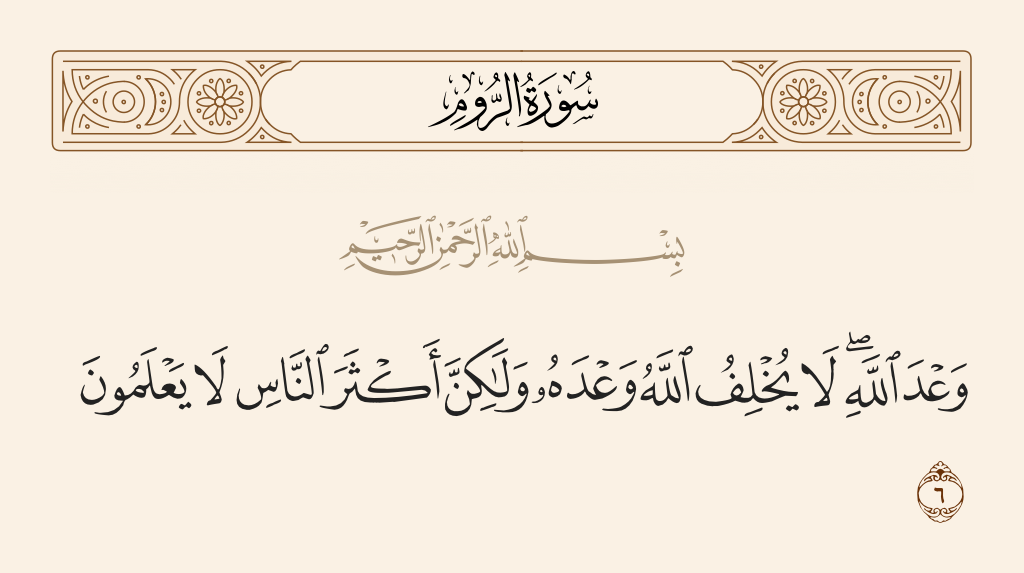 سُورَةُ الرُّومِ
بِسْمِ ٱللَّهِ ٱلرَّحْمَٰنِ ٱلرَّحِيمِ
وَعْدَ ٱللَّهِ ۖ لَا يُخْلِفُ ٱللَّهُ وَعْدَهُۥ وَلَٰكِنَّ أَكْثَرَ ٱلنَّاسِ لَا يَعْلَمُونَ
٦